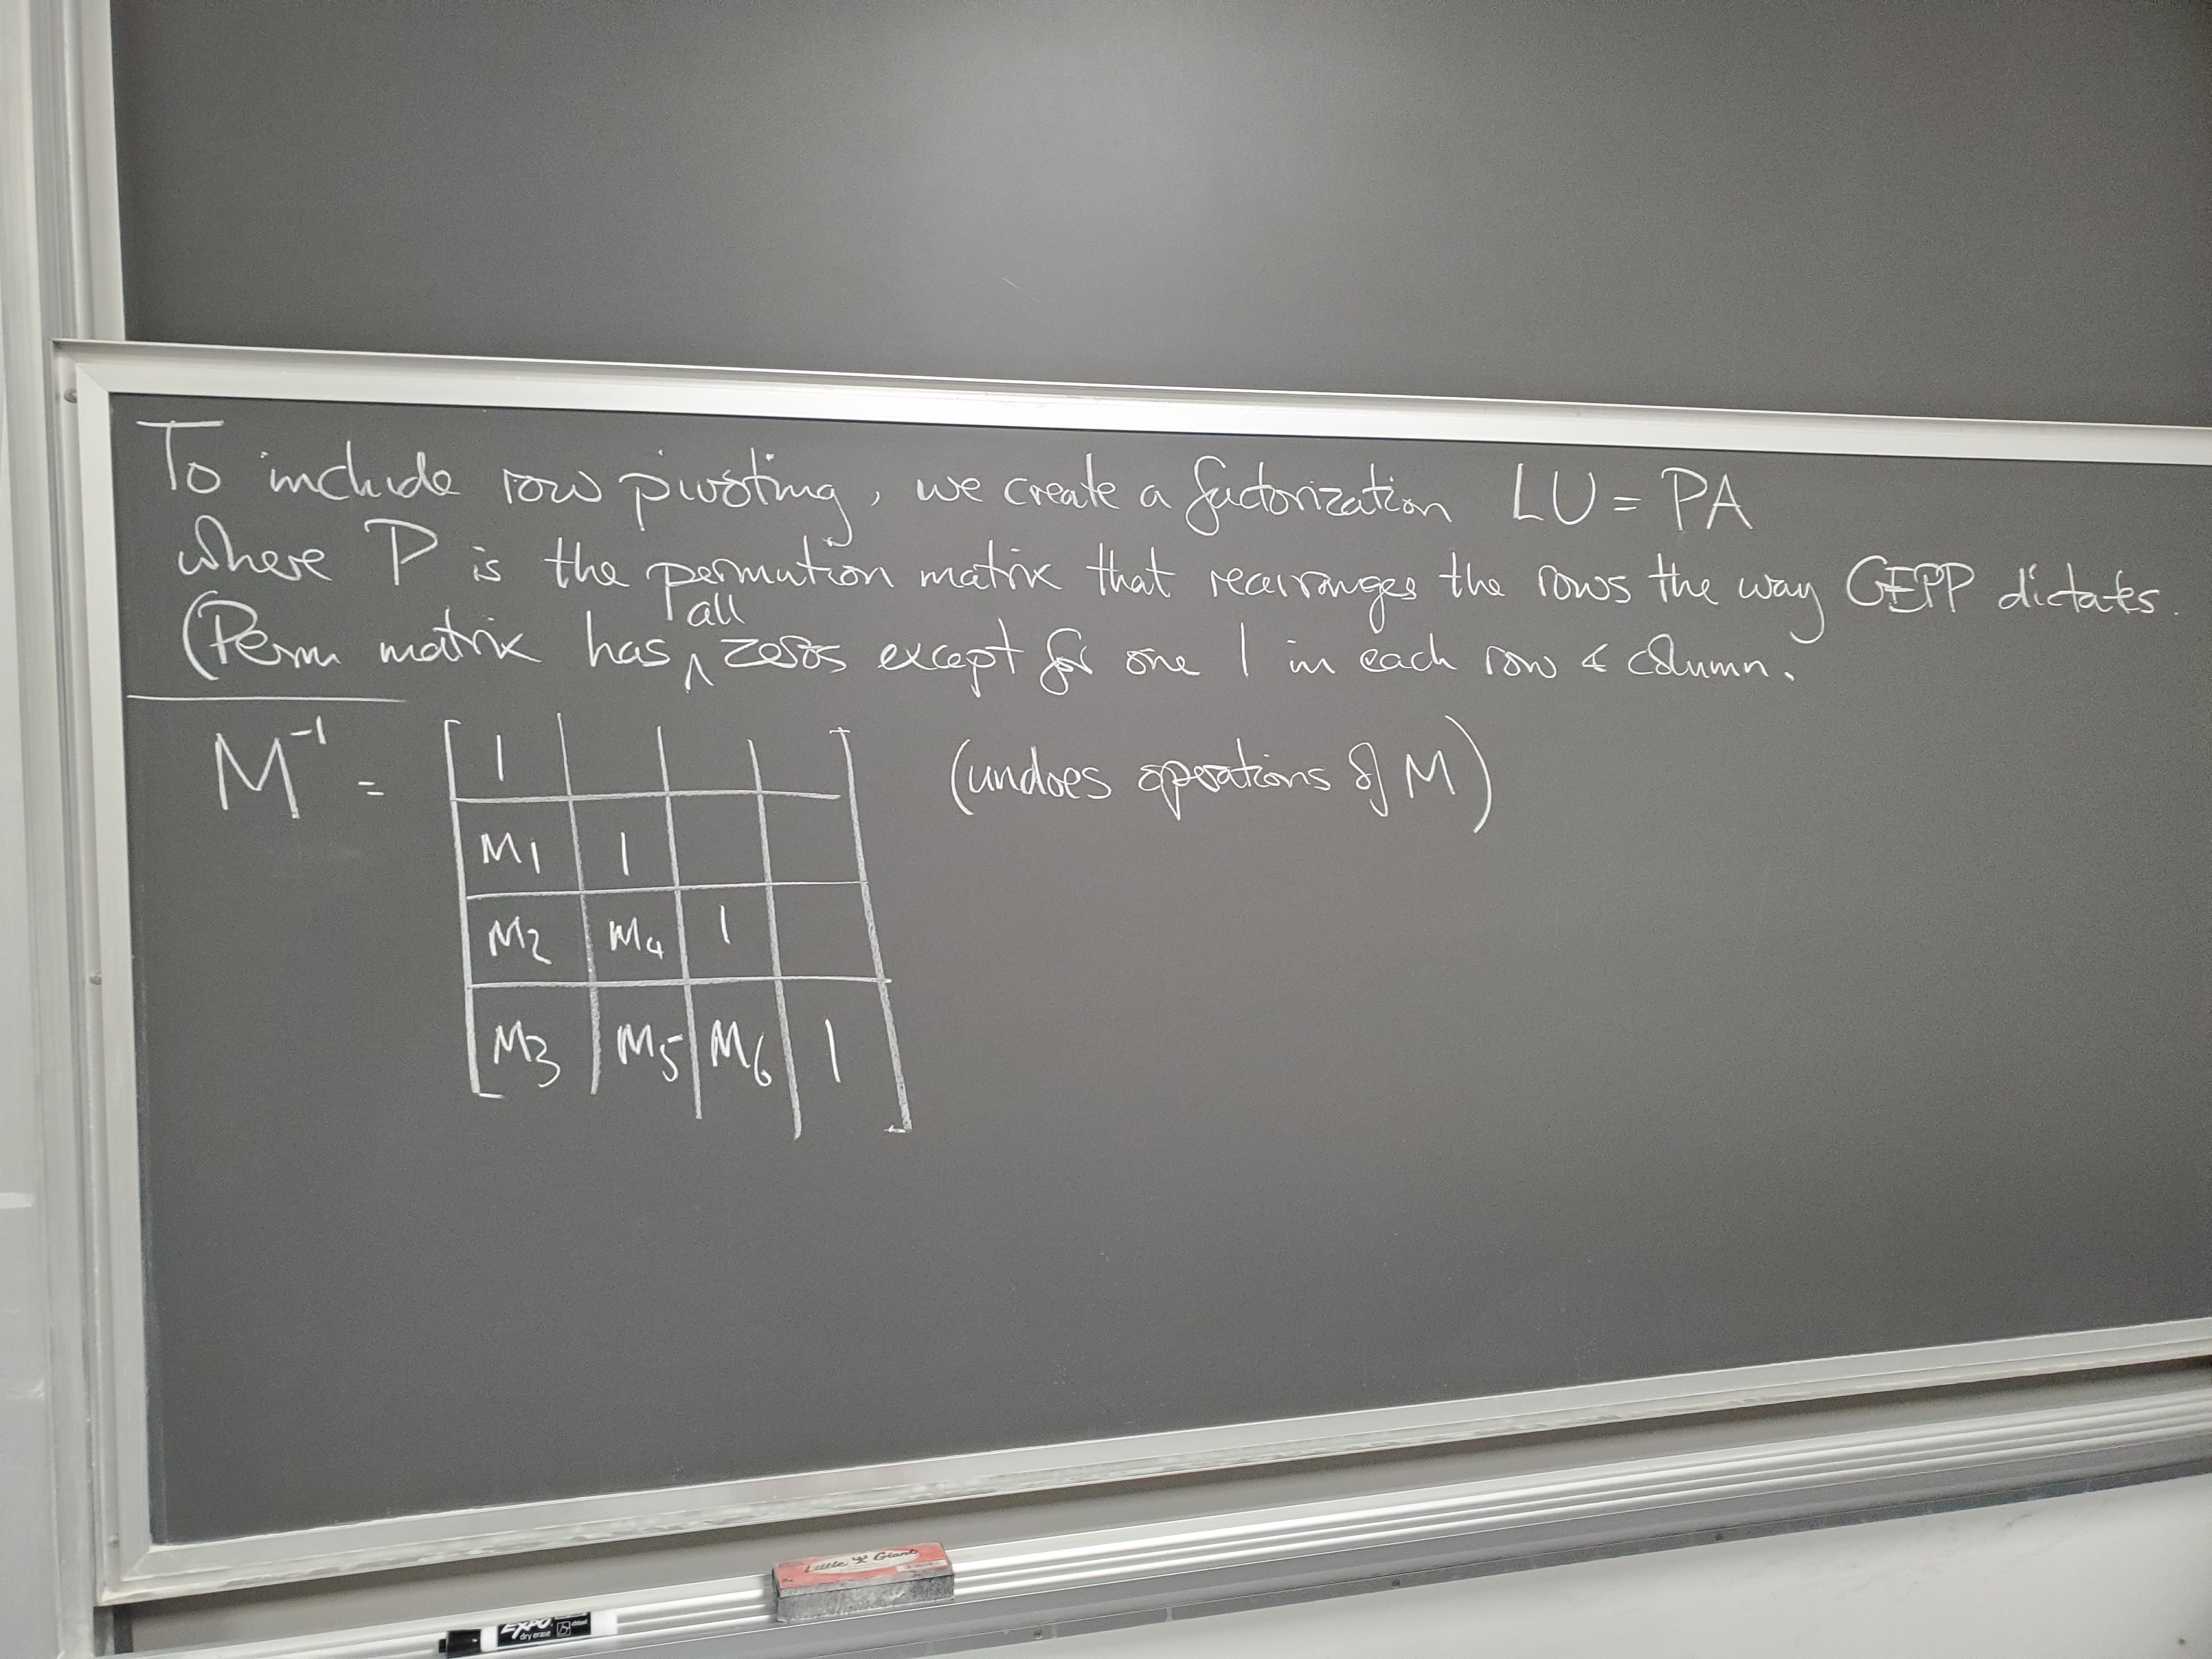 To include row pivoting, we create a factorization LU = PA
where P is the permution matrix that rearranges the rows the way GEPP dictates.
(Perm matrix has all zeros except for one 1 in each row & column.
M⁻¹ = (undoes operations of M)
1
M1 1
M2 M4 1
M3 M5 M6 1
Little Giant
EXPO
dry erase